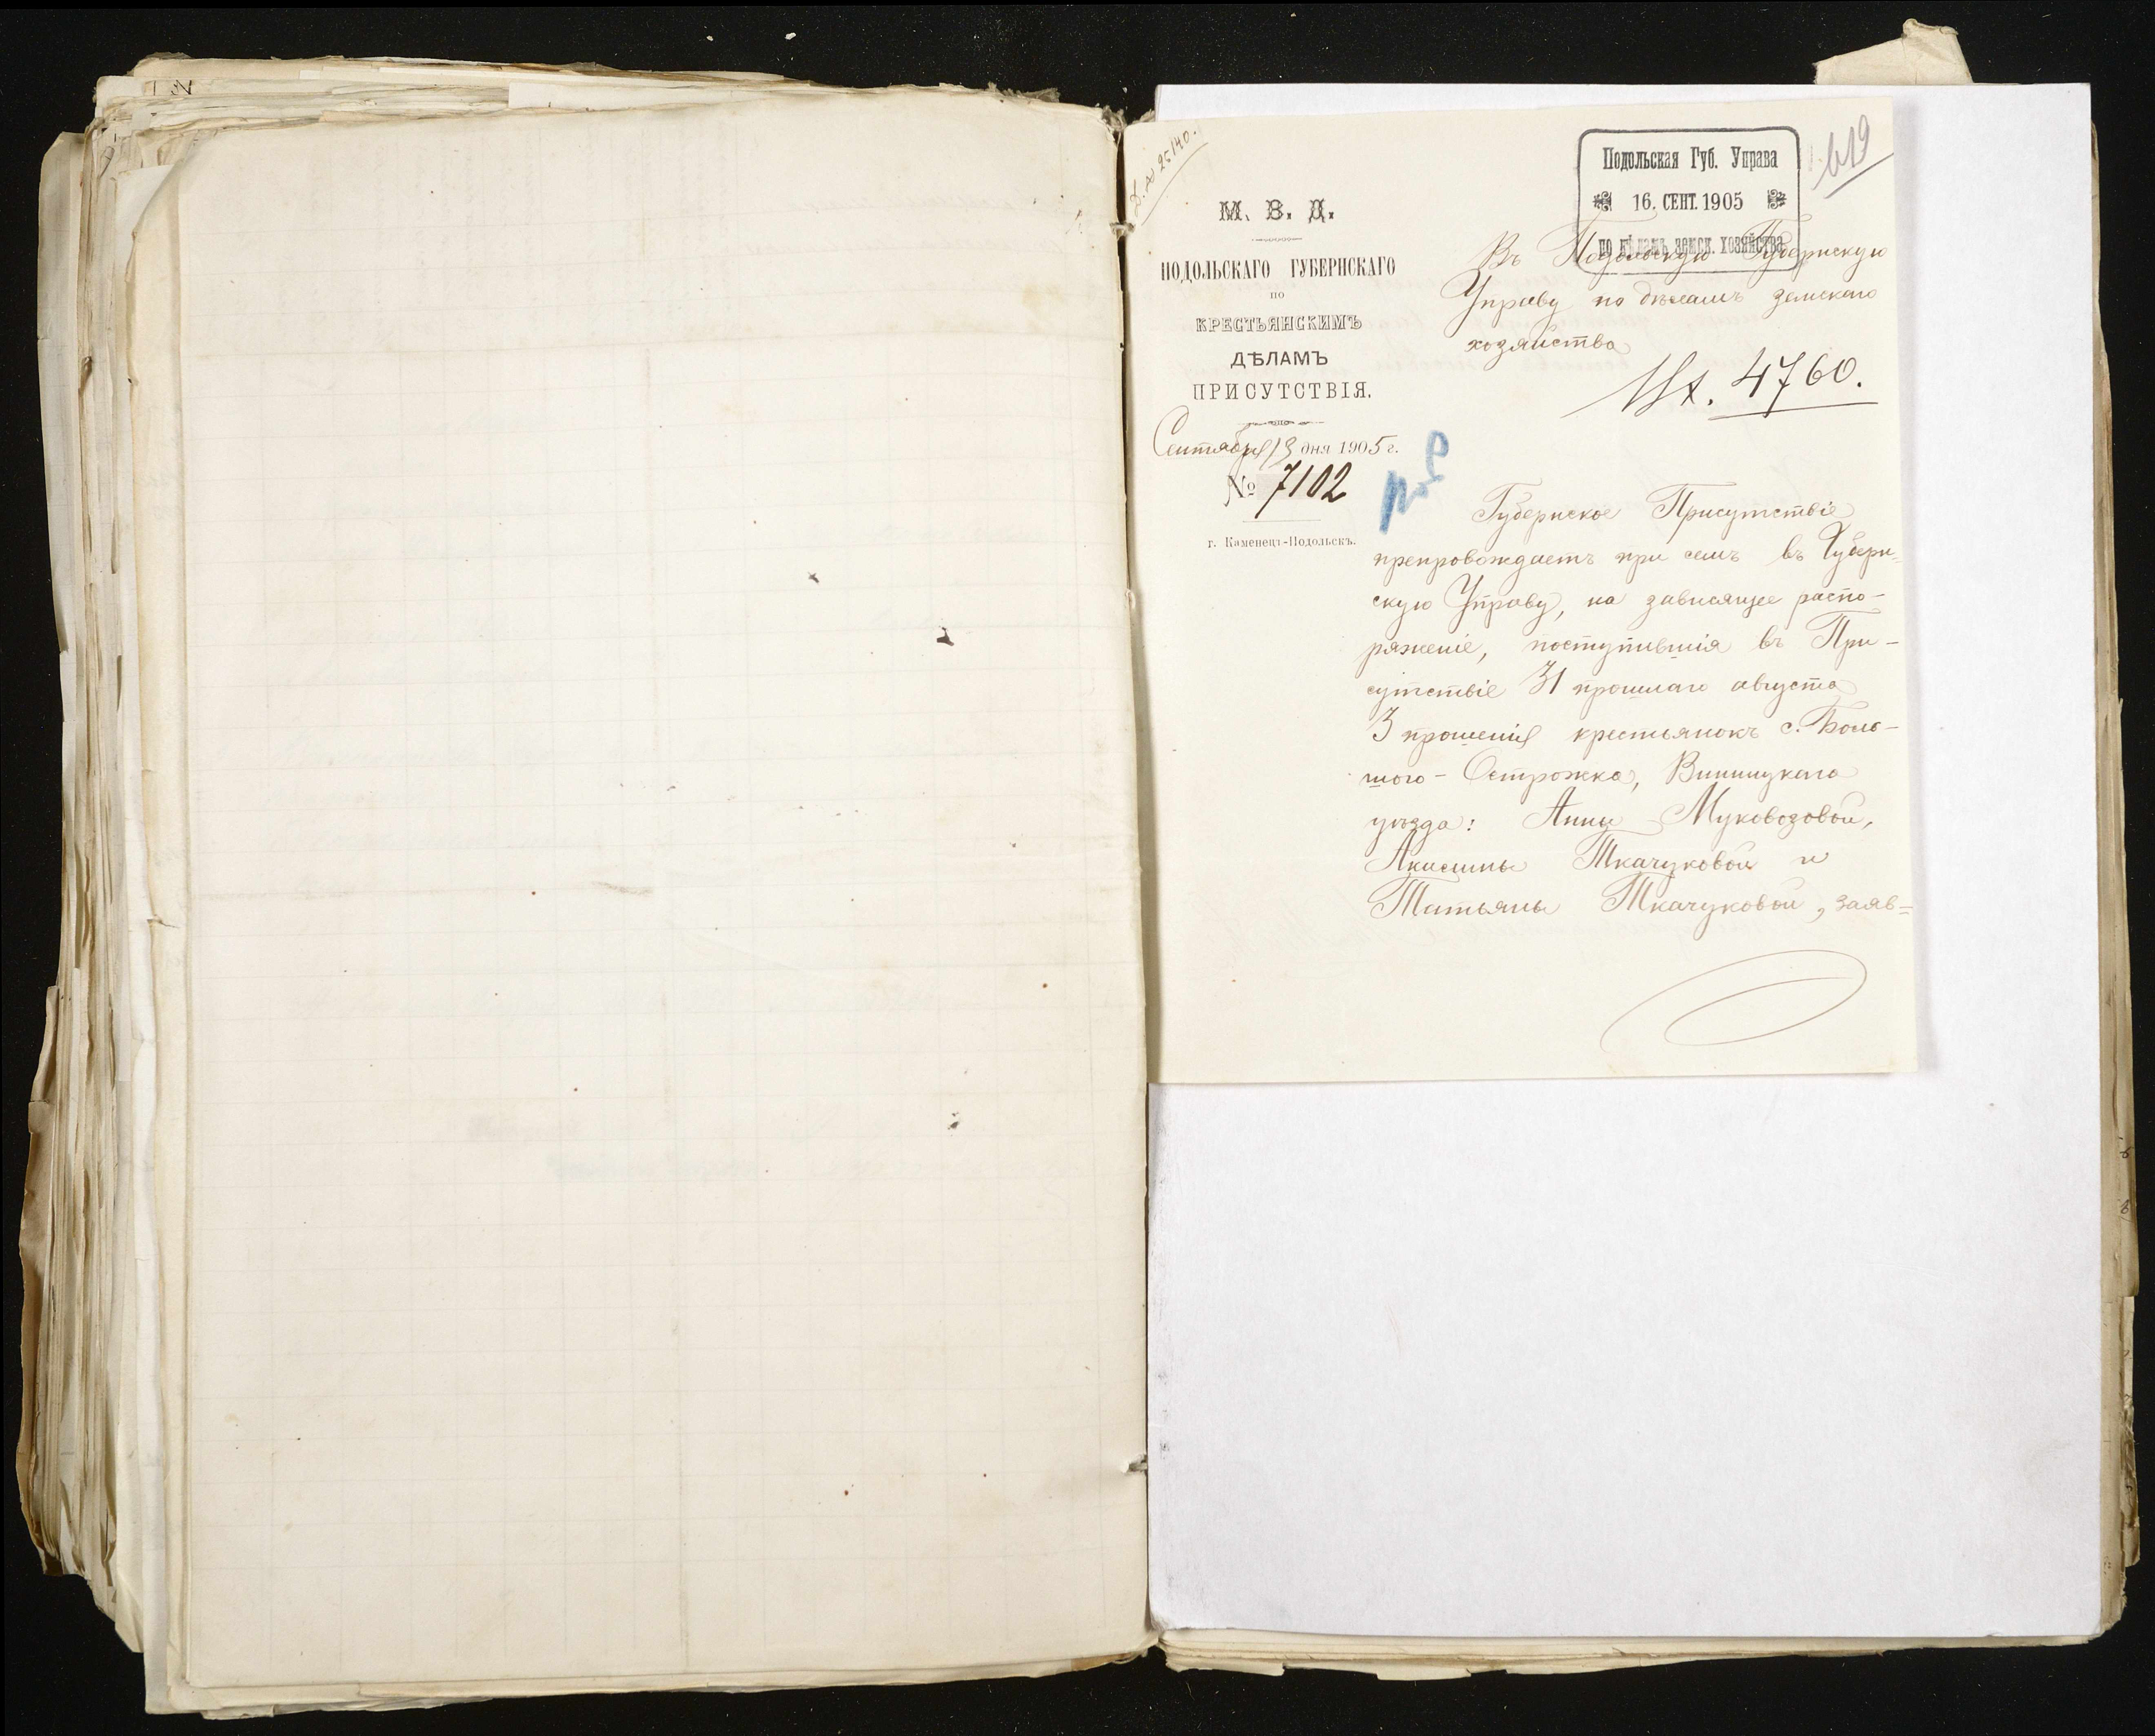 Д. № 25140.
619
Подольская Губ. Управа
16. СЕНТ. 1905
по дѣламъ земск. хозяйства
М. В. Д.
ПОДОЛЬСКАГО ГУБЕРНСКАГО
по
КРЕСТЬЯНСКИМЪ
ДѢЛАМЪ
ПРИСУТСТВІЯ.
Сентября 13 дня 1905 г.
№ 7102
г. Каменецъ-Подольскъ.
Въ Подольскую Губернскую
Управу по дѣламъ земскаго
хозяйства
4760.
Губернское Присутствіе
препровождаетъ при семъ въ Губерн=
скую Управу, на зависящее распо-
ряженіе, поступившія въ При-
сутствіе 31 прошлаго августа
3 прошенія крестьянокъ с. Боль-
шого-Острожка, Винницкаго
уѣзда: Анны Муковозовой,
Акисиньи Ткачуковой и
Татьяны Ткачуковой, заяв=